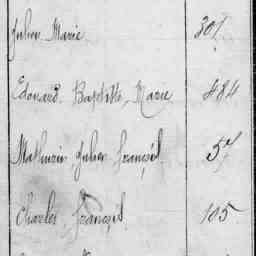 Julien Marie 301
Edouard Baptiste Marie 484
Mathurin Julien François 57
Charles François 105